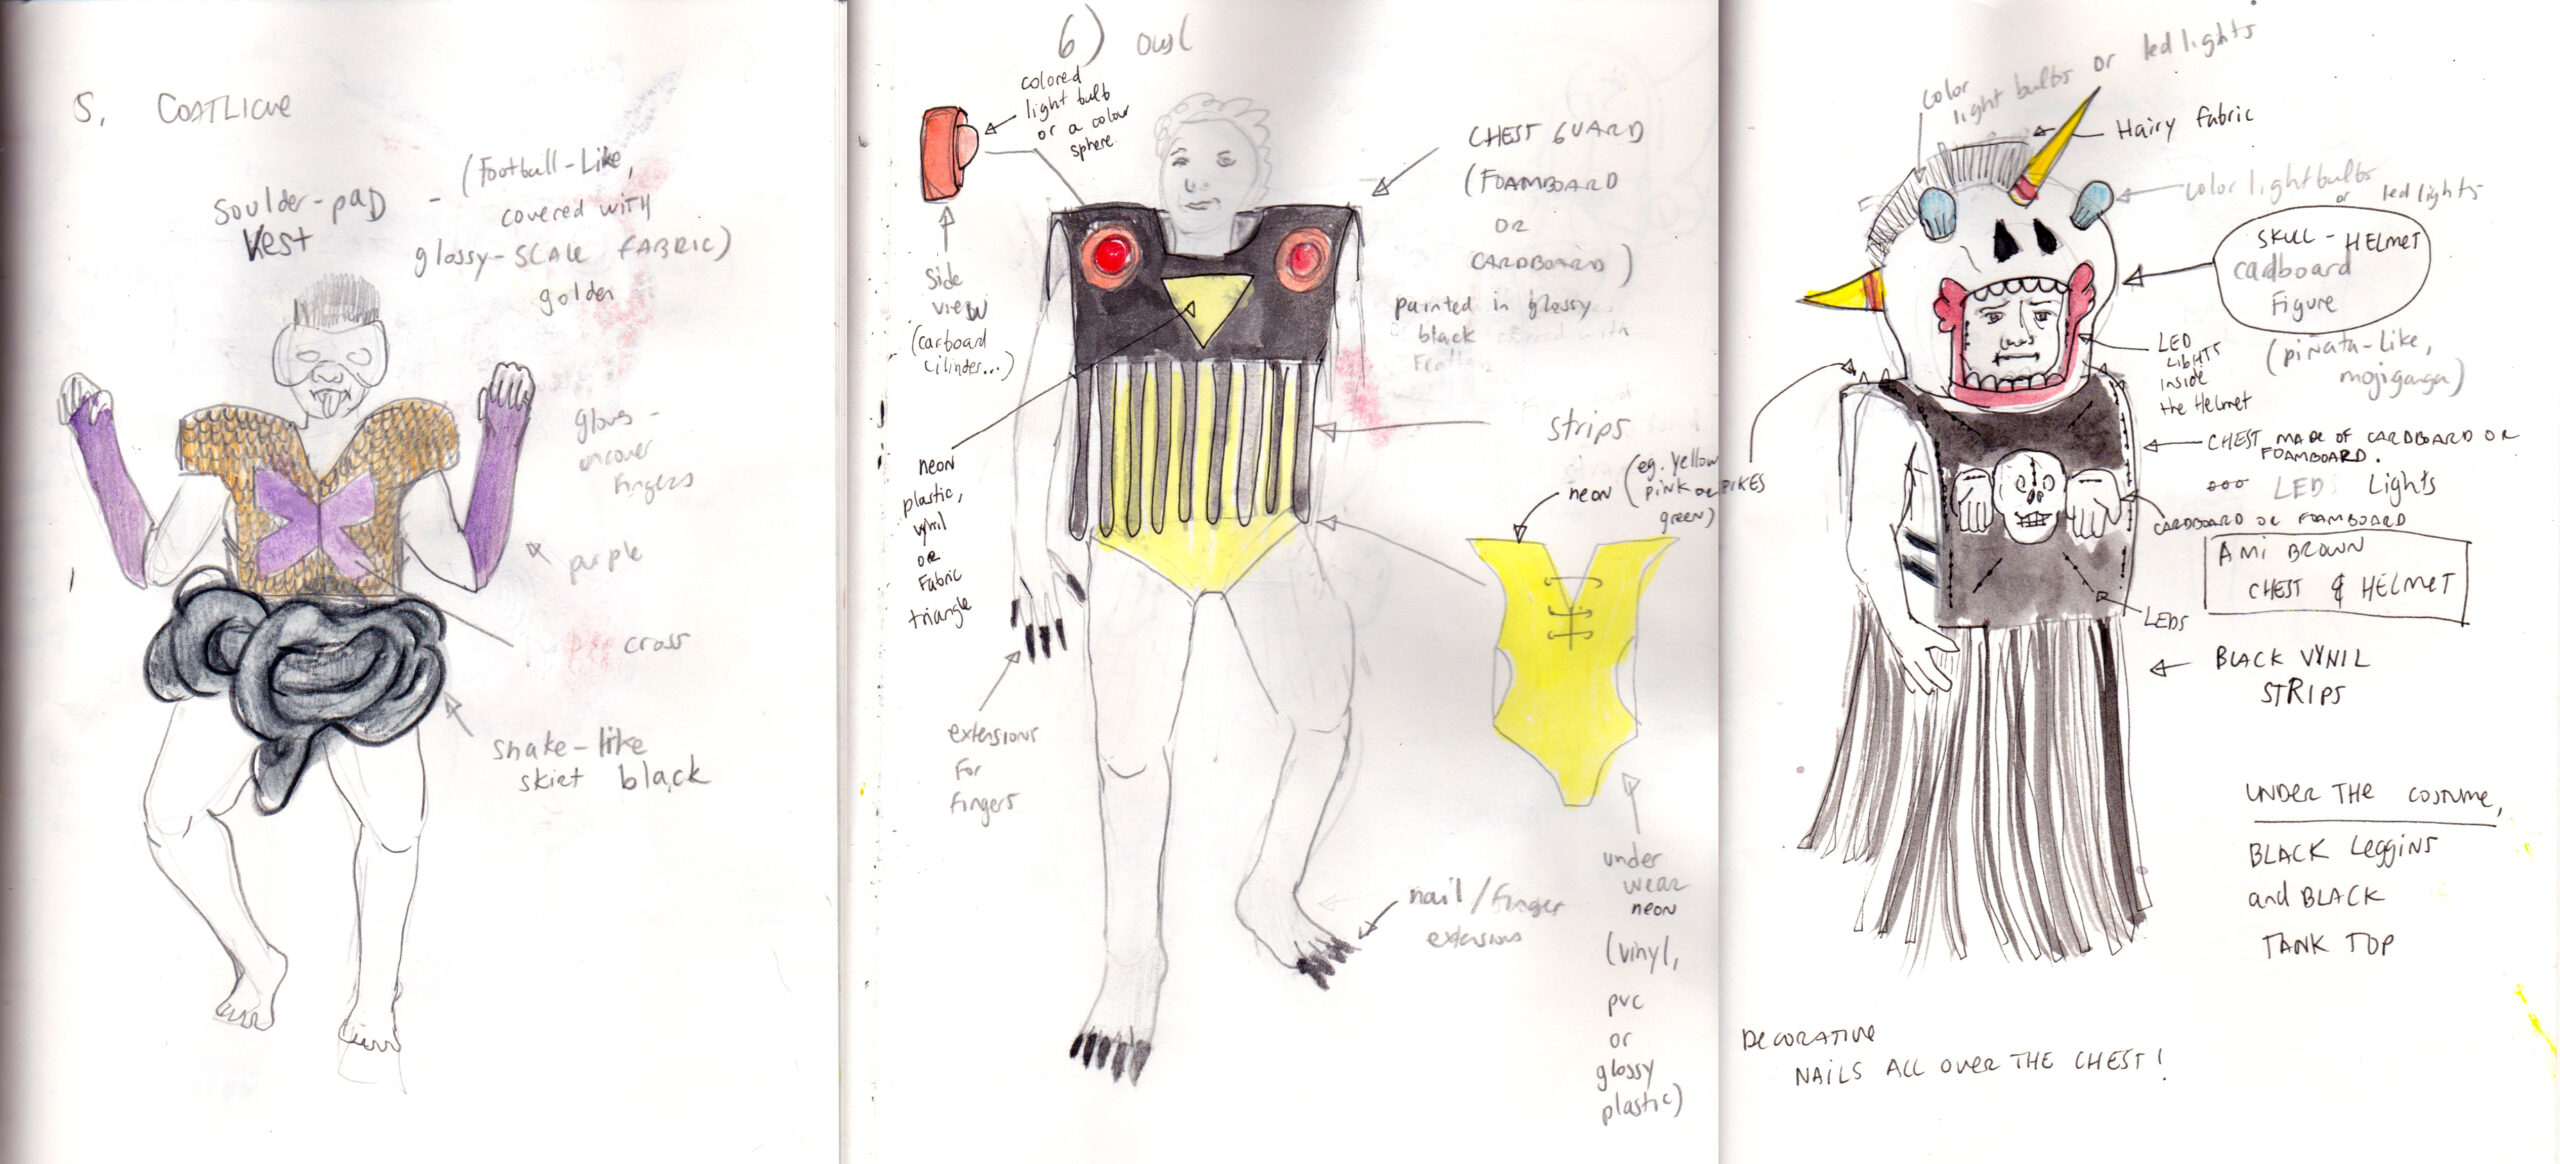 5. COATLICUE
SOULDER-PAD
Vest
- (Football-Like,
covered with
glossy-SCALE FABRIC)
golden
gloves -
uncover
fingers
purple
cross
snake-like
skirt black
6) owl
colored
light bulb
or a colour
sphere
Side
view
(carboard
cilinder...)
CHEST GUARD
(FOAMBOARD
OR
CARDBOARD)
painted in glossy
black
neon
plastic,
vynil
or
Fabric
triangle
strips
neon (eg. yellow
pink or
green)
extensions
for
fingers
nail/finger
extensions
under
wear
neon
(vinyl,
pvc
or
glossy
plastic)
color
light bulbs or led lights
Hairy fabric
color lightbulbs
or led lights
SKULL-HELMET
cardboard
Figure
(piñata-like,
mojiganga)
LED
LIGHTS
inside
the Helmet
PIKES
CHEST MADE OF CARDBOARD OR
FOAMBOARD.
LED Lights
CARDBOARD OR FOAMBOARD
AMI BROWN
CHEST & HELMET
LEDS
BLACK VYNIL
STRIPS
UNDER THE COSTUME,
BLACK Leggins
and BLACK
TANK TOP
DECORATIVE
NAILS ALL OVER THE CHEST!